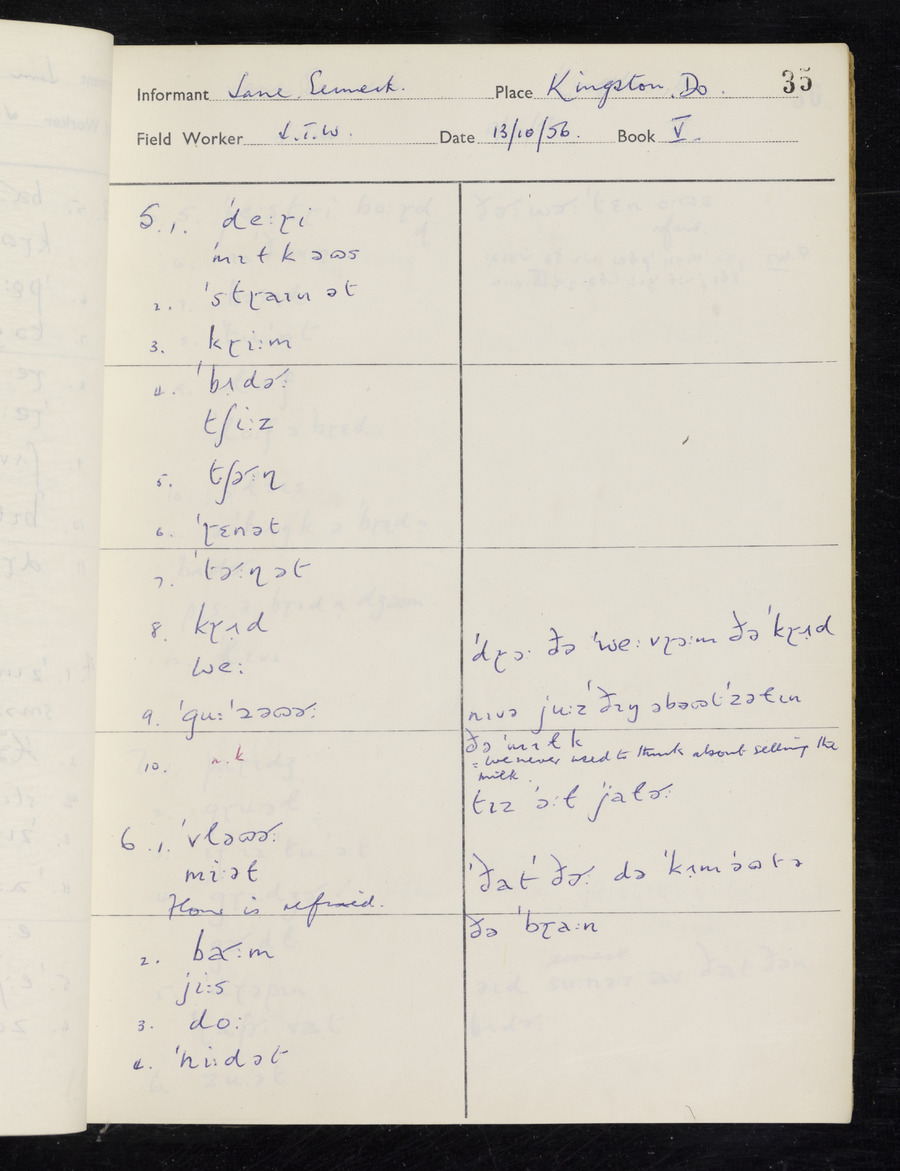 35
Informant Jane Place Kingston, Do.
Field Worker Date 13/10/56. Book V.
5.1. ˈdeːɽi
ˈmɪɫk əʊs
2. ˈstɽaɪn ət
3. kɽiːm
4. ˈbʌdəʳː
tʃiːz
5. tʃəʳːɳ
6. ˈɽɛnət
7. ˈtəʳːɳ ət
8. kɽʌd
weː
9. ˈguːˈzəʊəʳː
10. n.k
6.1. ˈvləʊəʳː
miːət
Flour is refined.
2. baʳːm
jiːs
3. doː
4. ˈniːdət
ˈdɽoː ðə ˈweː vɽəːm ðə ˈkɽʌd
nɪvə juːzˈðɪŋ əbəʊtˈzəɫɪn
ðə ˈmɪɫk
= we never used to think about selling the
milk.
tɪz ˈɔːɫ ˈjaləʳː
ˈðatˈ ðəʳː də ˈkʌm ˈəʊtə
ðə ˈbɽaːn